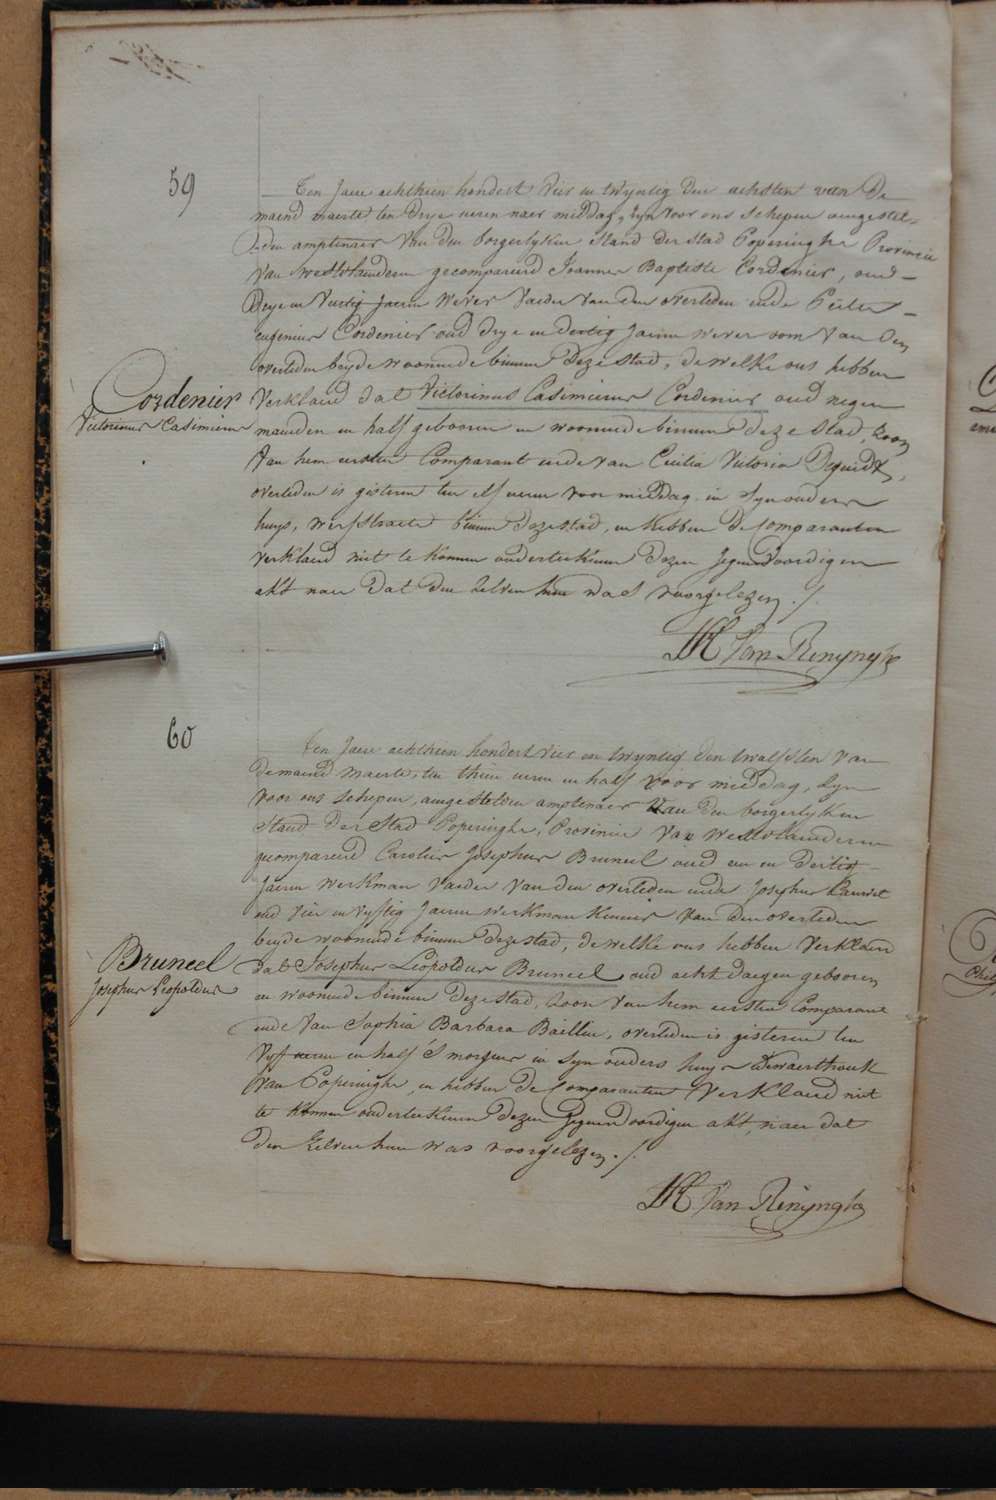 59
Ten Jaere achthien hondert Vier en twyntig den achsten van De
maend maerte ten drye ueren naer middag, zyn voor ons schepen aengestel-
den amptenaer Van den borgerlyken Stand der stad Poperinghe Provincie
Van Westvlaenderen gecompareerd Joannes Baptiste Cordenier, oud
Drye en Veertig Jaeren Wever Vaeder Van den overleden ende Pieter
eugenius Cordenier oud drye en dertig Jaeren Wever oom Van den
overleden beyde woonende binnen Deze stad, de welke ons hebben
Cordenier
Victorinus Casimierus
Verklaerd dat Victorinus Casimierus Cordenier oud negen
maenden en half gebooren en woonende binnen deze stad, Zoon
Van hem eersten Comparant ende van Cicilia Victoria
overleden is gisteren ten elf ueren voor middag in syn ouders
huys, binnen Deze stad, en hebben De Comparanten
verklaerd niet te konnen onderteekenen Dezen Jegenwoordigen
akt naer Dat den zelven hun was voorgelezen ./.
Van Renynghe
60
Ten Jaere achthien hondert vier en twyntig den twalfsten Van
De maend Maerte, ten thien ueren en half voor middag, Zyn
voor ons schepen, aengestelden amptenaer Van den borgerlyken
Stand Der Stad Poperinghe, Provincie Van Westvlaenderen
gecompareerd Carolus Josephus Bruneel oud een en Dertig
Jaeren Werkman Vaeder Van den overleden ende Josephus
oud vier en vyftig Jaeren werkman Van den overleden
beyde woonende binnen Deze stad, de welke ons hebben Verklaerd
Bruneel
Josephus Leopoldus
dat Josephus Leopoldus Bruneel oud acht daegen gebooren
en woonende binnen Deze stad, Zoon Van hem eersten Comparant
ende Van Sophia Barbara Baillieu, overleden is gisteren ten
Vyf ueren en half 's morgens in syn ouders huys
Van Poperinghe, en hebben De Comparanten Verklaerd niet
te konnen onderteekenen Dezen Jegenwoordigen akt naer dat
den Zelven hun was voorgelezen ./.
Van Renynghe